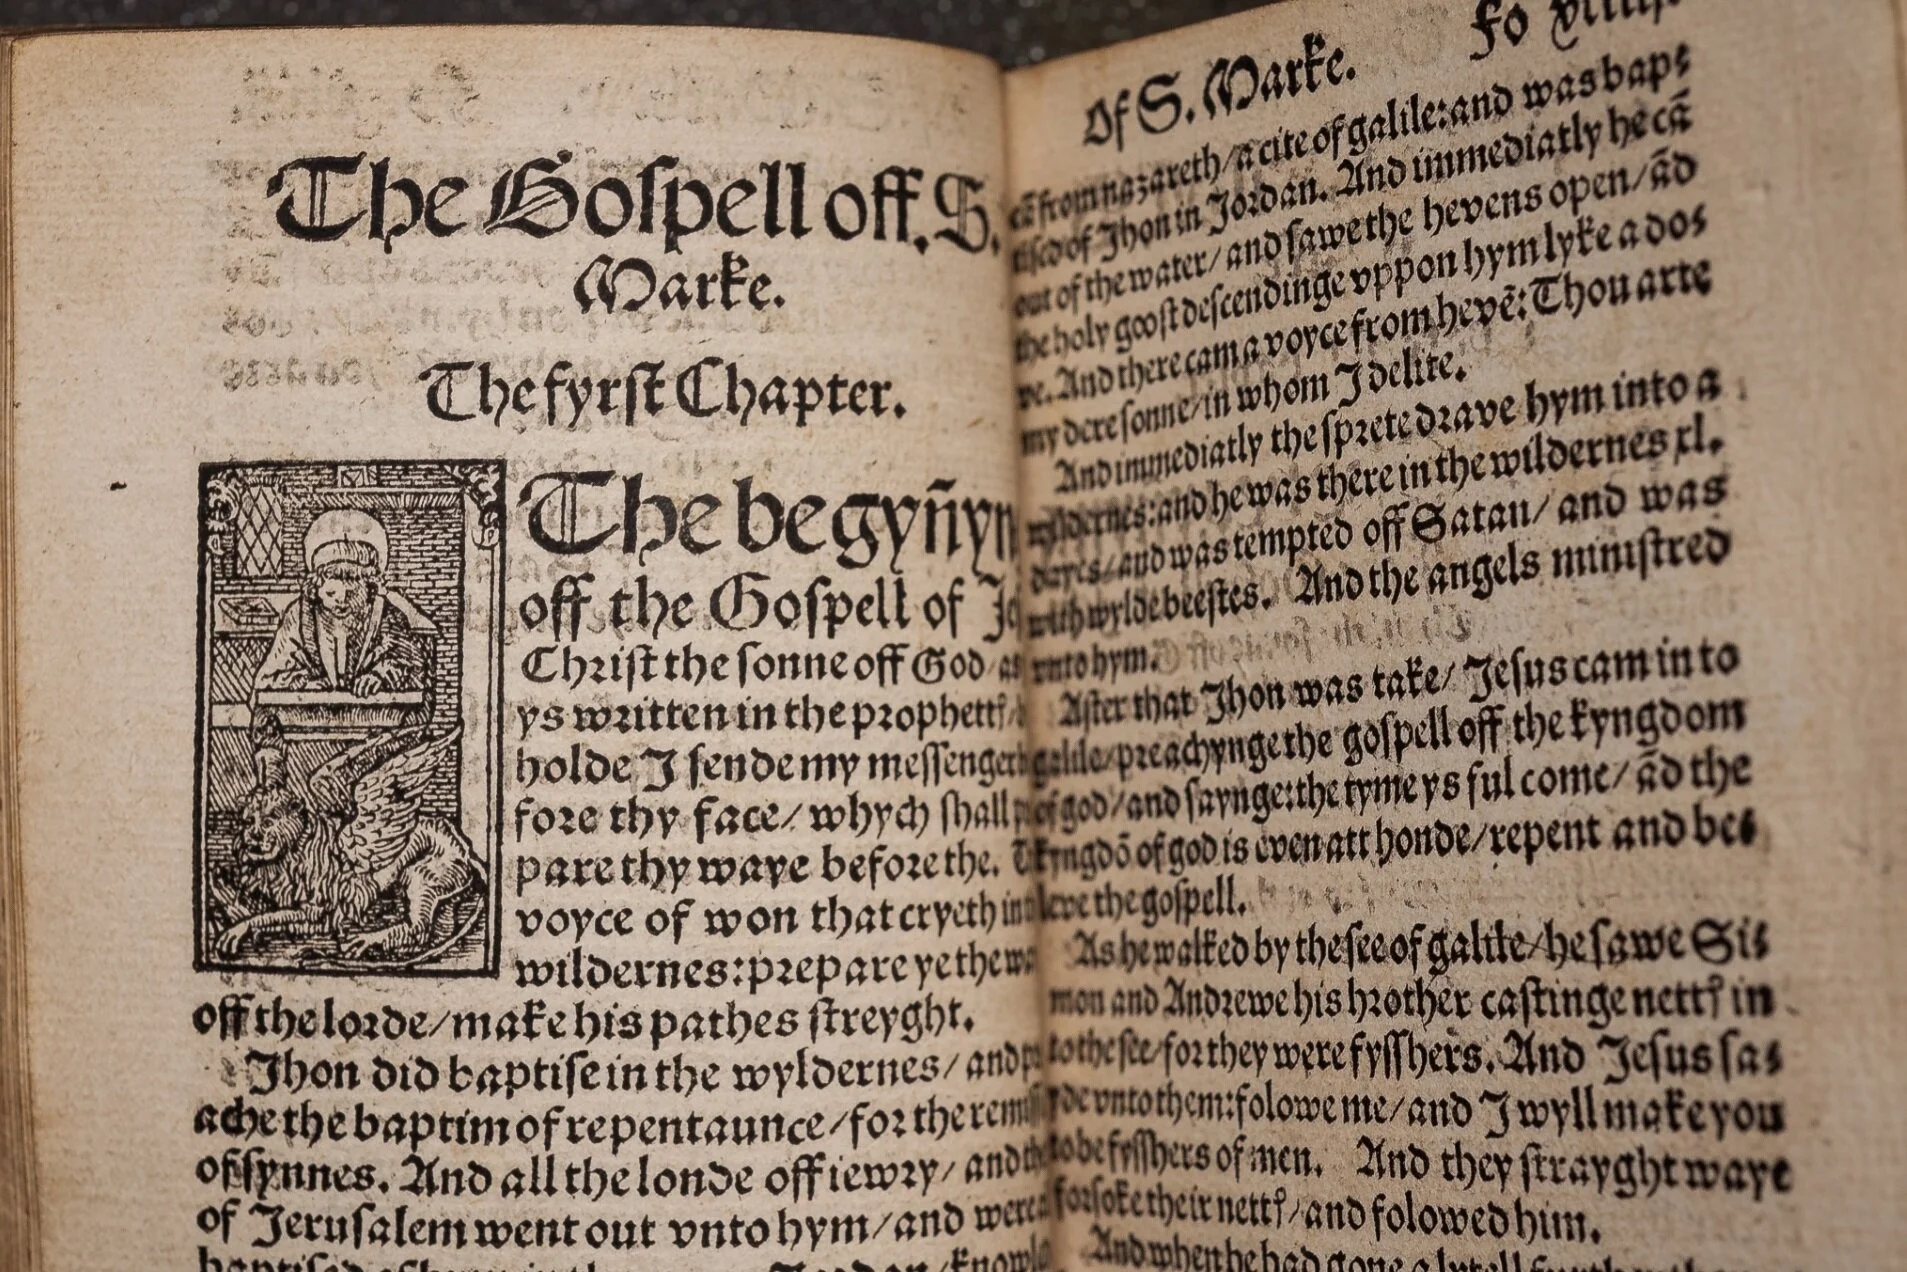 The Gospell off. S.
Marke.
The fyrst Chapter.
The begyñyn
off the Gospell of
Christ the sonne off God
ys written in the prophettꝭ
holde I sende my messenger
fore thy face/ whych shall
pare thy waye before the.
voyce of won that cryeth in
wildernes: prepare ye the
off the lorde/ make his pathes streyght.
Jhon did baptise in the wyldernes/ and
ache the baptim of repentaunce/ for the
of synnes. And all the londe off iewry/ and
of Jerusalem went out vnto hym/ and were
Of S. Marke. Fo
from nazareth/ a cite of galile: and was bap⸗
of Jhon in Jordan. And immediatly he cã
out of the water/ and sawe the hevens open/ ãd
the holy goost descendinge vppon hym lyke a do⸗
ve. And there cam a voyce from hevẽ: Thou arte
my dere sonne/ in whom I delite.
And immediatly the sprete drave hym into a
wyldernes: and he was there in the wildernes xl.
dayes/ and was tempted off Satan/ and was
with wylde beestes. And the angels ministred
vnto hym.
After that Jhon was take/ Jesus cam in to
galile/ preachynge the gospell off the kyngdom
of god/ and saynge: the tyme ys ful come/ ãd the
kyngdõ of god is even att honde/ repent and be⸗
leve the gospell.
As he walked by the see of galile/ he sawe Si⸗
mon and Andrewe his brother castinge nettꝭ in
to the see/ for they were fysshers. And Jesus sa⸗
de vnto them: folowe me/ and I wyll make you
to be fysshers of men. And they strayght waye
forsoke their nettꝭ/ and folowed him.
And when he had gone a lytell further